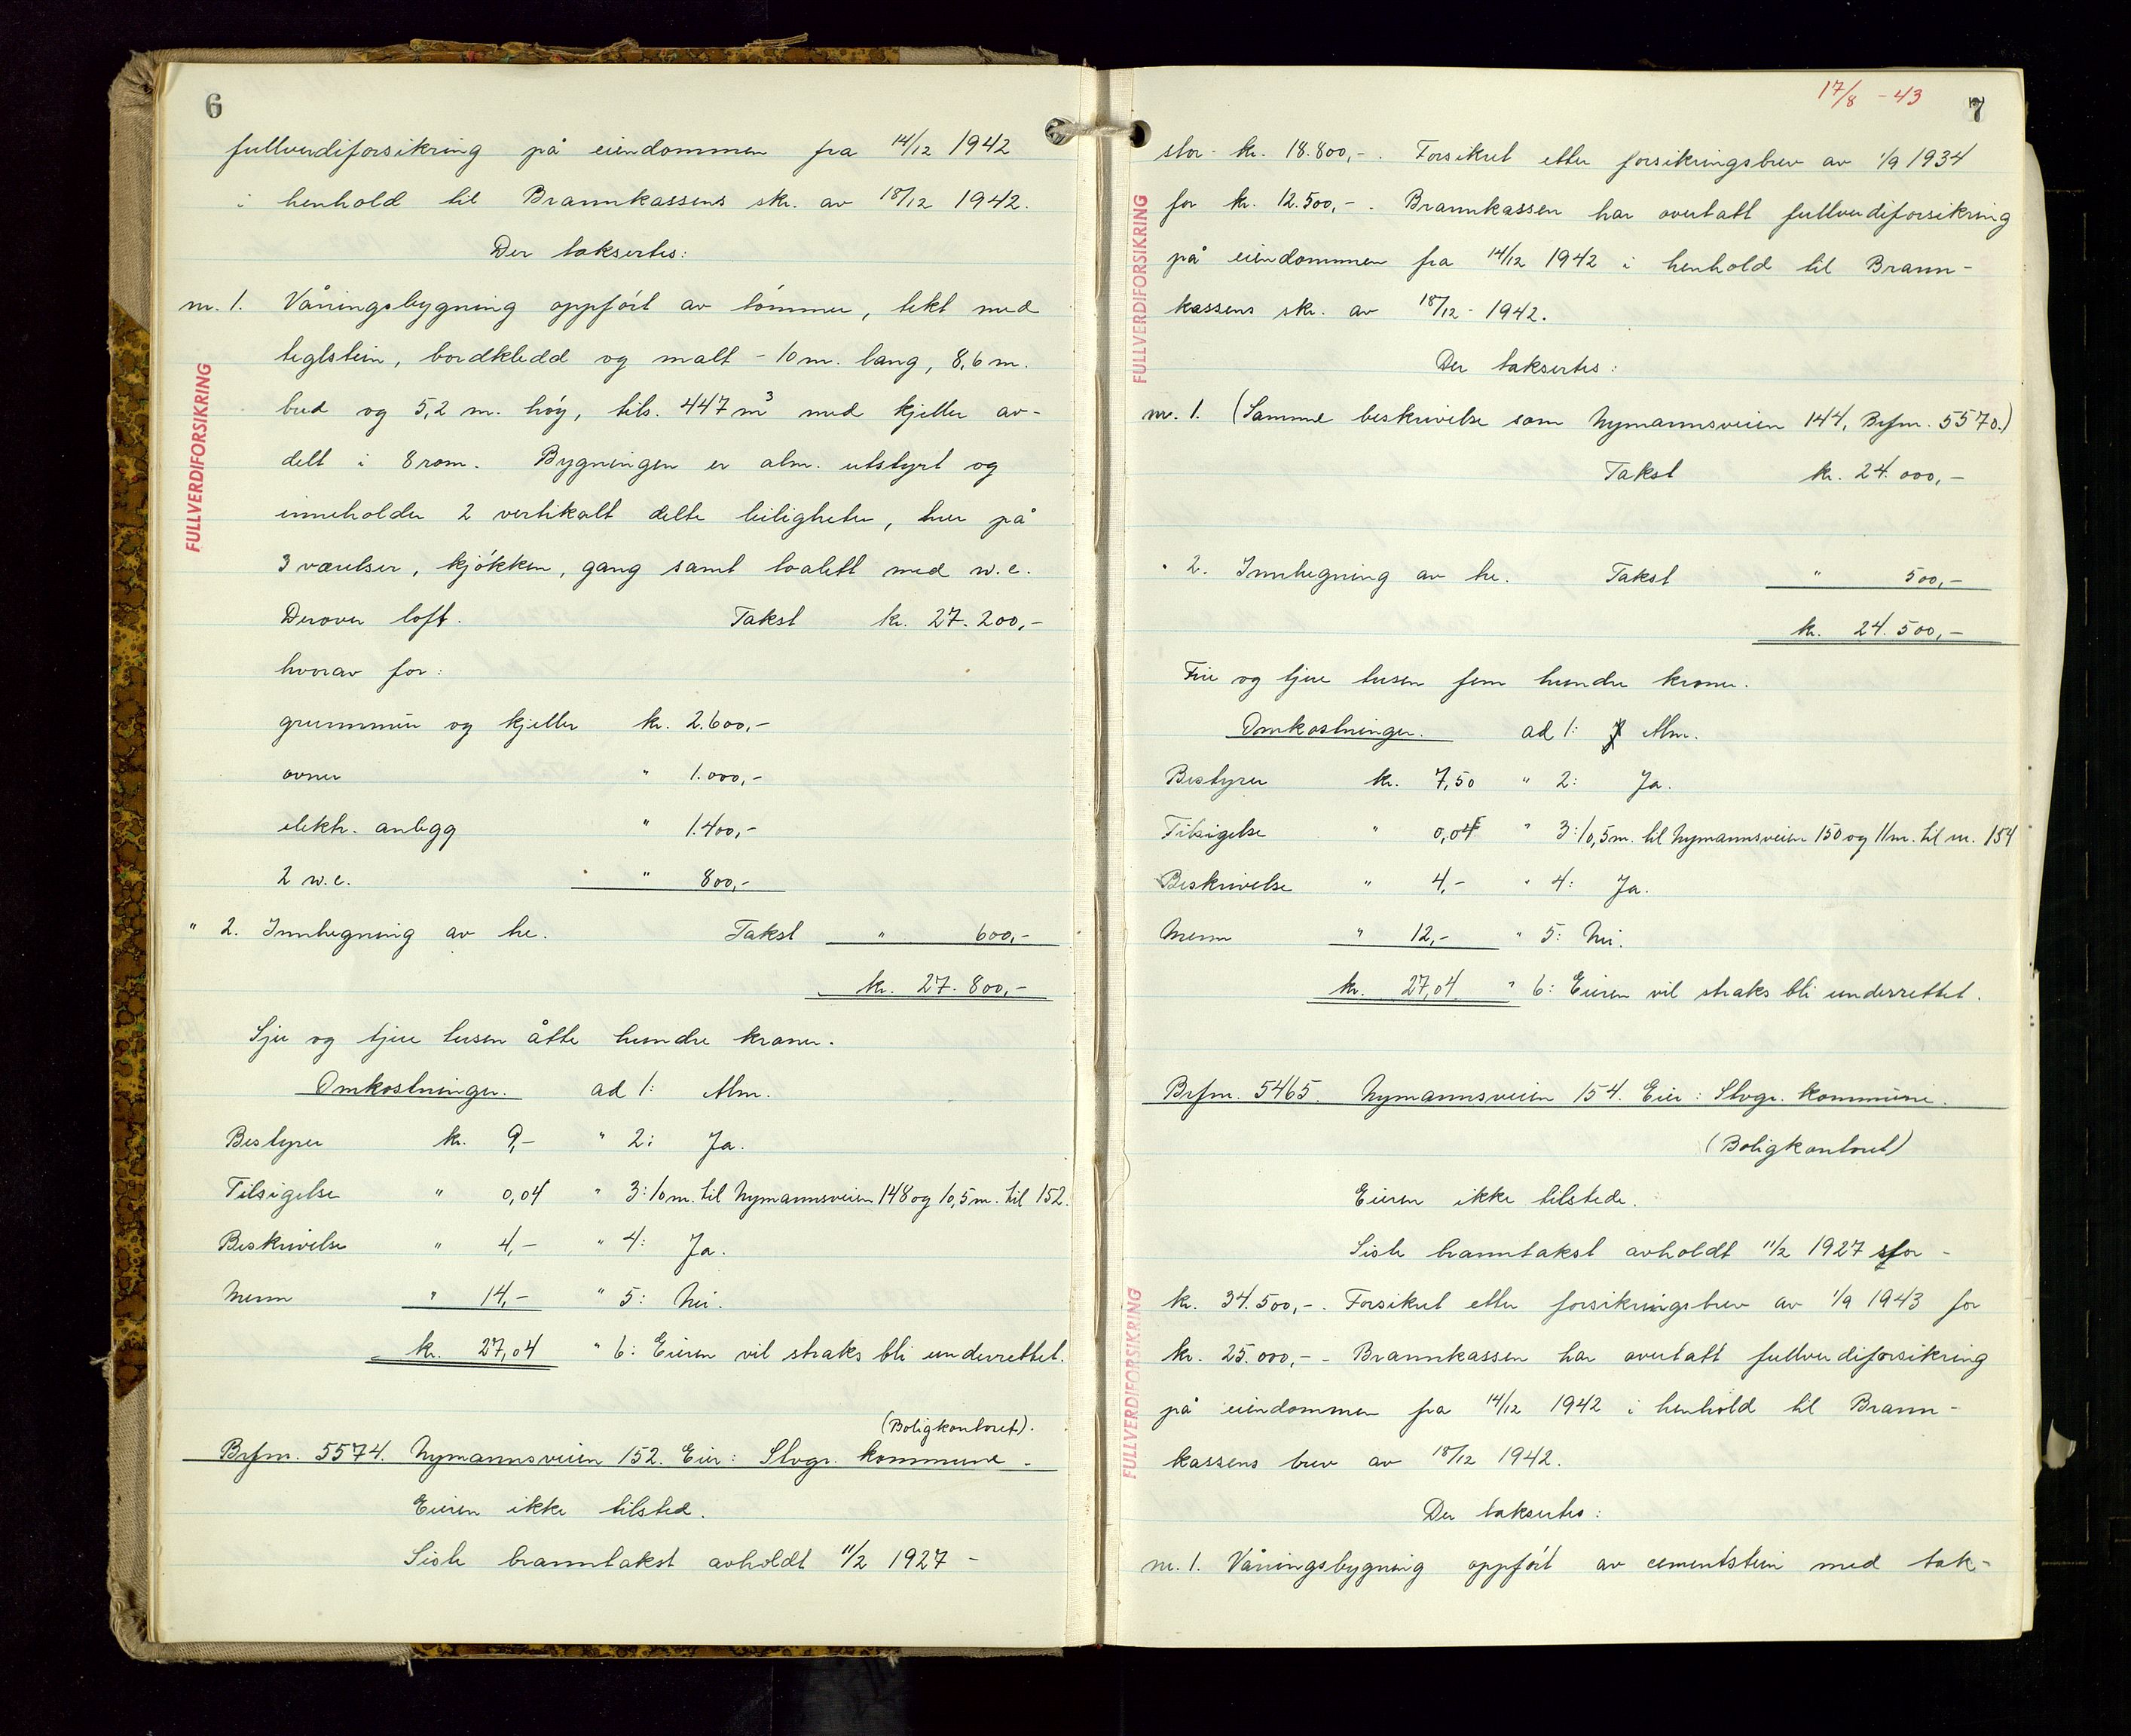 6
fullverdiforsikring på eiendommen fra 14/12 1942
i henhold til Brannkassens skr. av 18/12 1942.
Der taksertes:
nr. 1. Våningsbygning oppført av tømmer, tekt med
teglstein, bordkledd og malt - 10 m. lang, 8,6 m.
bred og 5,2 m. høy, tils. 447 m³ med kjeller av-
delt i 8 rom. Bygningen er alm. utstyrt og
inneholder 2 vertikalt delte leiligheter, hver på
3 værelser, kjøkken, gang samt toalett med w.c.
Derover loft. Takst kr. 27.200,-
hvorav for:
grunnmur og kjeller kr. 2.600,-
ovner " 1.000,-
elektr. anlegg " 1.400,-
2 w.c. " 800,-
" 2. Innhegning av tre. Takst " 600,-
kr. 27.800,-
Sju og tjue tusen åtte hundre kroner.
Omkostninger. ad 1: Alm.
Bestyrer kr. 9,- " 2: Ja.
Tilsigelse " 0,04 " 3: 10 m. til Nymannsveien 148 og 10,5 m. til 152.
Beskrivelse " 4,- " 4: Ja.
Menn " 14,- " 5: Nei.
kr. 27,04 " 6: Eieren vil straks bli underrettet.
(Boligkontoret).
Brfnr. 5574. Nymannsveien 152. Eier: Stvgr. kommune.
Eieren ikke tilsted.
Siste branntakst avholdt 11/2 1927 -
FULLVERDIFORSIKRING
17/8 - 43
7
stor - kr. 18.800,-. Forsikret etter forsikringsbrev av 1/9 1934
for kr. 12.500,-. Brannkassen har overtatt fullverdiforsikring
på eiendommen fra 14/12 1942 i henhold til Brann-
kassens skr. av 18/12 - 1942.
Der taksertes:
nr. 1. (Samme beskrivelse som Nymannsveien 144, Brfnr. 5570.)
Takst kr. 24.000,-
" 2. Innhegning av tre. Takst " 500,-
kr. 24.500,-
Fire og tjue tusen fem hundre kroner.
Omkostninger. ad 1: Alm.
Bestyrer kr. 7,50 " 2: Ja.
Tilsigelse " 0,04 " 3: 10,5 m. til Nymannsveien 150 og 11 m. til nr. 154
Beskrivelse " 4,- " 4: Ja.
Menn " 12,- " 5: Nei.
kr. 27,04 " 6: Eieren vil straks bli underrettet.
Brfnr. 5465. Nymannsveien 154. Eier: Stvgr. kommune.
(Boligkontoret)
Eieren ikke tilstede.
Siste branntakst avholdt 11/2 1927 for -
kr. 34.500,-. Forsikret etter forsikringsbrev av 1/9 1943 for
kr. 25.000,- - Brannkassen har overtatt fullverdiforsikring
på eiendommen fra 14/12 1942 i henhold til Brann-
kassens brev av 18/12 1942.
Der taksertes:
nr. 1. Våningsbygning oppført av cementstein med tak-
FULLVERDIFORSIKRING
FULLVERDIFORSIKRING